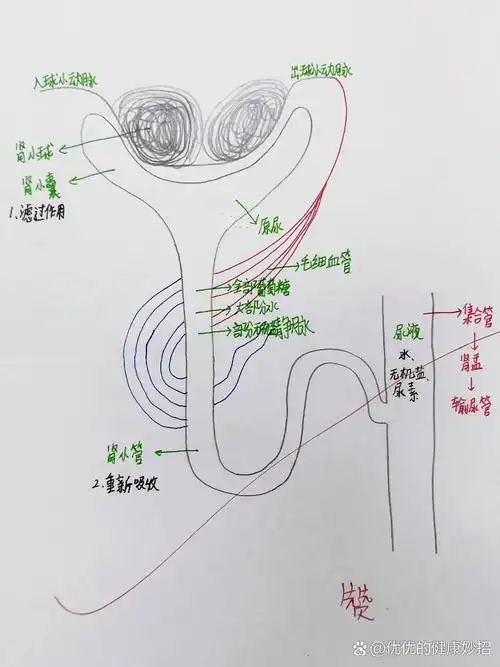 入球小动脉
出球小动脉
肾小球
肾小囊
1、滤过作用
原尿
毛细血管
全部葡萄糖
大部分水
部份 水
尿液
水、
无机盐、
尿素
集合管
肾盂
输尿管
肾小管
2.重新吸收
赞
@优优的健康妙招